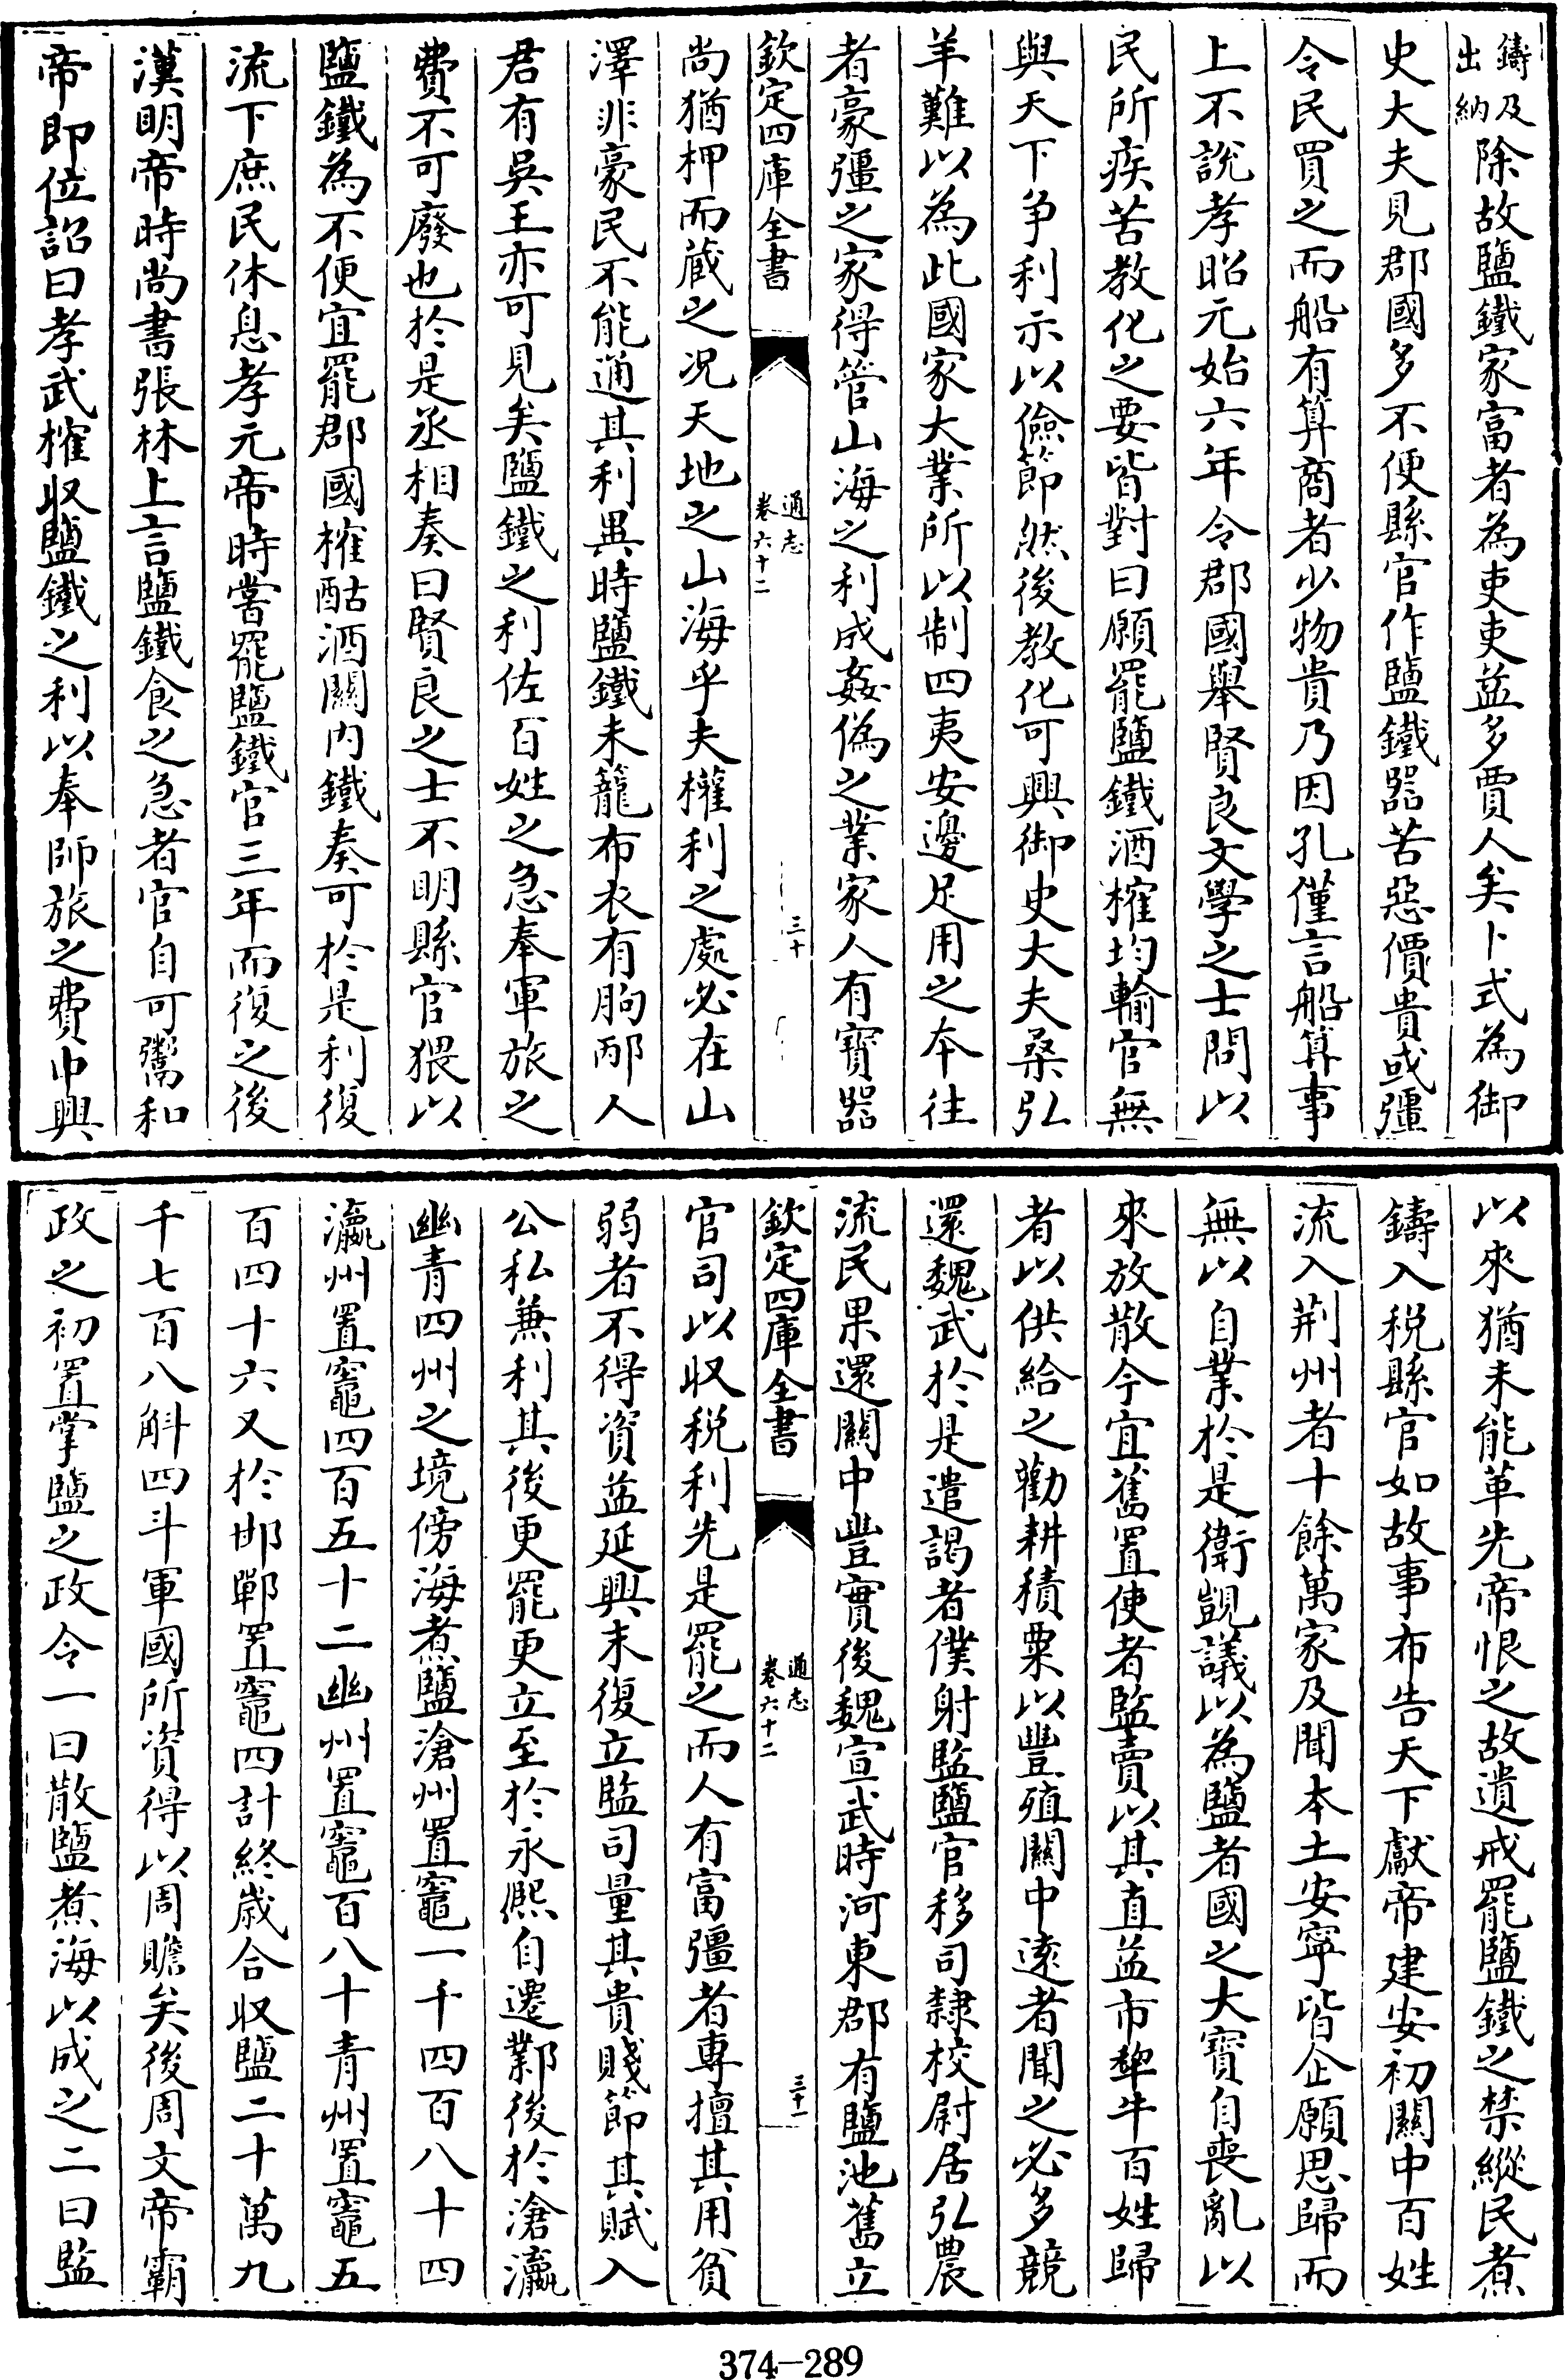 鑄及
出納
除故鹽鐵家富者為吏吏益多賈人矣卜式為御
史大夫見郡國多不便縣官作鹽鐵器苦惡價貴或彊
令民買之而船有算商者少物貴乃因孔僅言船算事
上不說孝昭元始六年令郡國舉賢良文學之士問以
民所疾苦教化之要皆對曰願罷鹽鐵酒榷均輸官無
與天下争利示以儉節然後教化可興御史大夫桑弘
羊難以為此國家大業所以制四夷安邊足用之本往
者豪彊之家得管山海之利成姦偽之業家人有寳器
欽定四庫全書
通志
卷六十二
三十
尚猶柙而藏之况天地之山海乎夫權利之處必在山
澤非豪民不能通其利異時鹽鐵未籠布衣有朐邴人
君有吳王亦可見矣鹽鐵之利佐百姓之急奉軍旅之
費不可廢也於是丞相奏曰賢良之士不明縣官猥以
鹽鐵為不便宜罷郡國榷酤酒關内鐵奏可於是利復
流下庶民休息孝元帝時嘗罷鹽鐵官三年而復之後
漢明帝時尚書張林上言鹽鐵食之急者官自可鬻和
帝即位詔曰孝武榷収鹽鐵之利以奉師旅之費中興
以來猶未能革先帝恨之故遺戒罷鹽鐵之禁縱民煮
鑄入稅縣官如故事布告天下獻帝建安初關中百姓
流入荆州者十餘萬家及聞本土安寧皆企願思歸而
無以自業於是衛覬議以為鹽者國之大寳自喪亂以
來放散今宜舊置使者監賣以其直益市犂牛百姓歸
者以供給之勸耕積粟以豐殖關中逺者聞之必多競
還魏武於是遣謁者僕射監鹽官移司隸校尉居弘農
流民果還關中豐實後魏宣武時河東郡有鹽池舊立
欽定四庫全書
通志
卷六十二
三十一
官司以収稅利先是罷之而人有富彊者專擅其用貧
弱者不得資益延興末復立監司量其貴賤節其賦入
公私兼利其後更罷更立至於永熙自遷鄴後於滄瀛
幽青四州之境傍海煮鹽滄州置竈一千四百八十四
瀛州置竈四百五十二幽州置竈百八十青州置竈五
百四十六又於邯鄲置竈四計終歲合収鹽二十萬九
千七百八斛四斗軍國所資得以周贍矣後周文帝霸
政之初置掌鹽之政令一曰散鹽煮海以成之二曰監
374-289